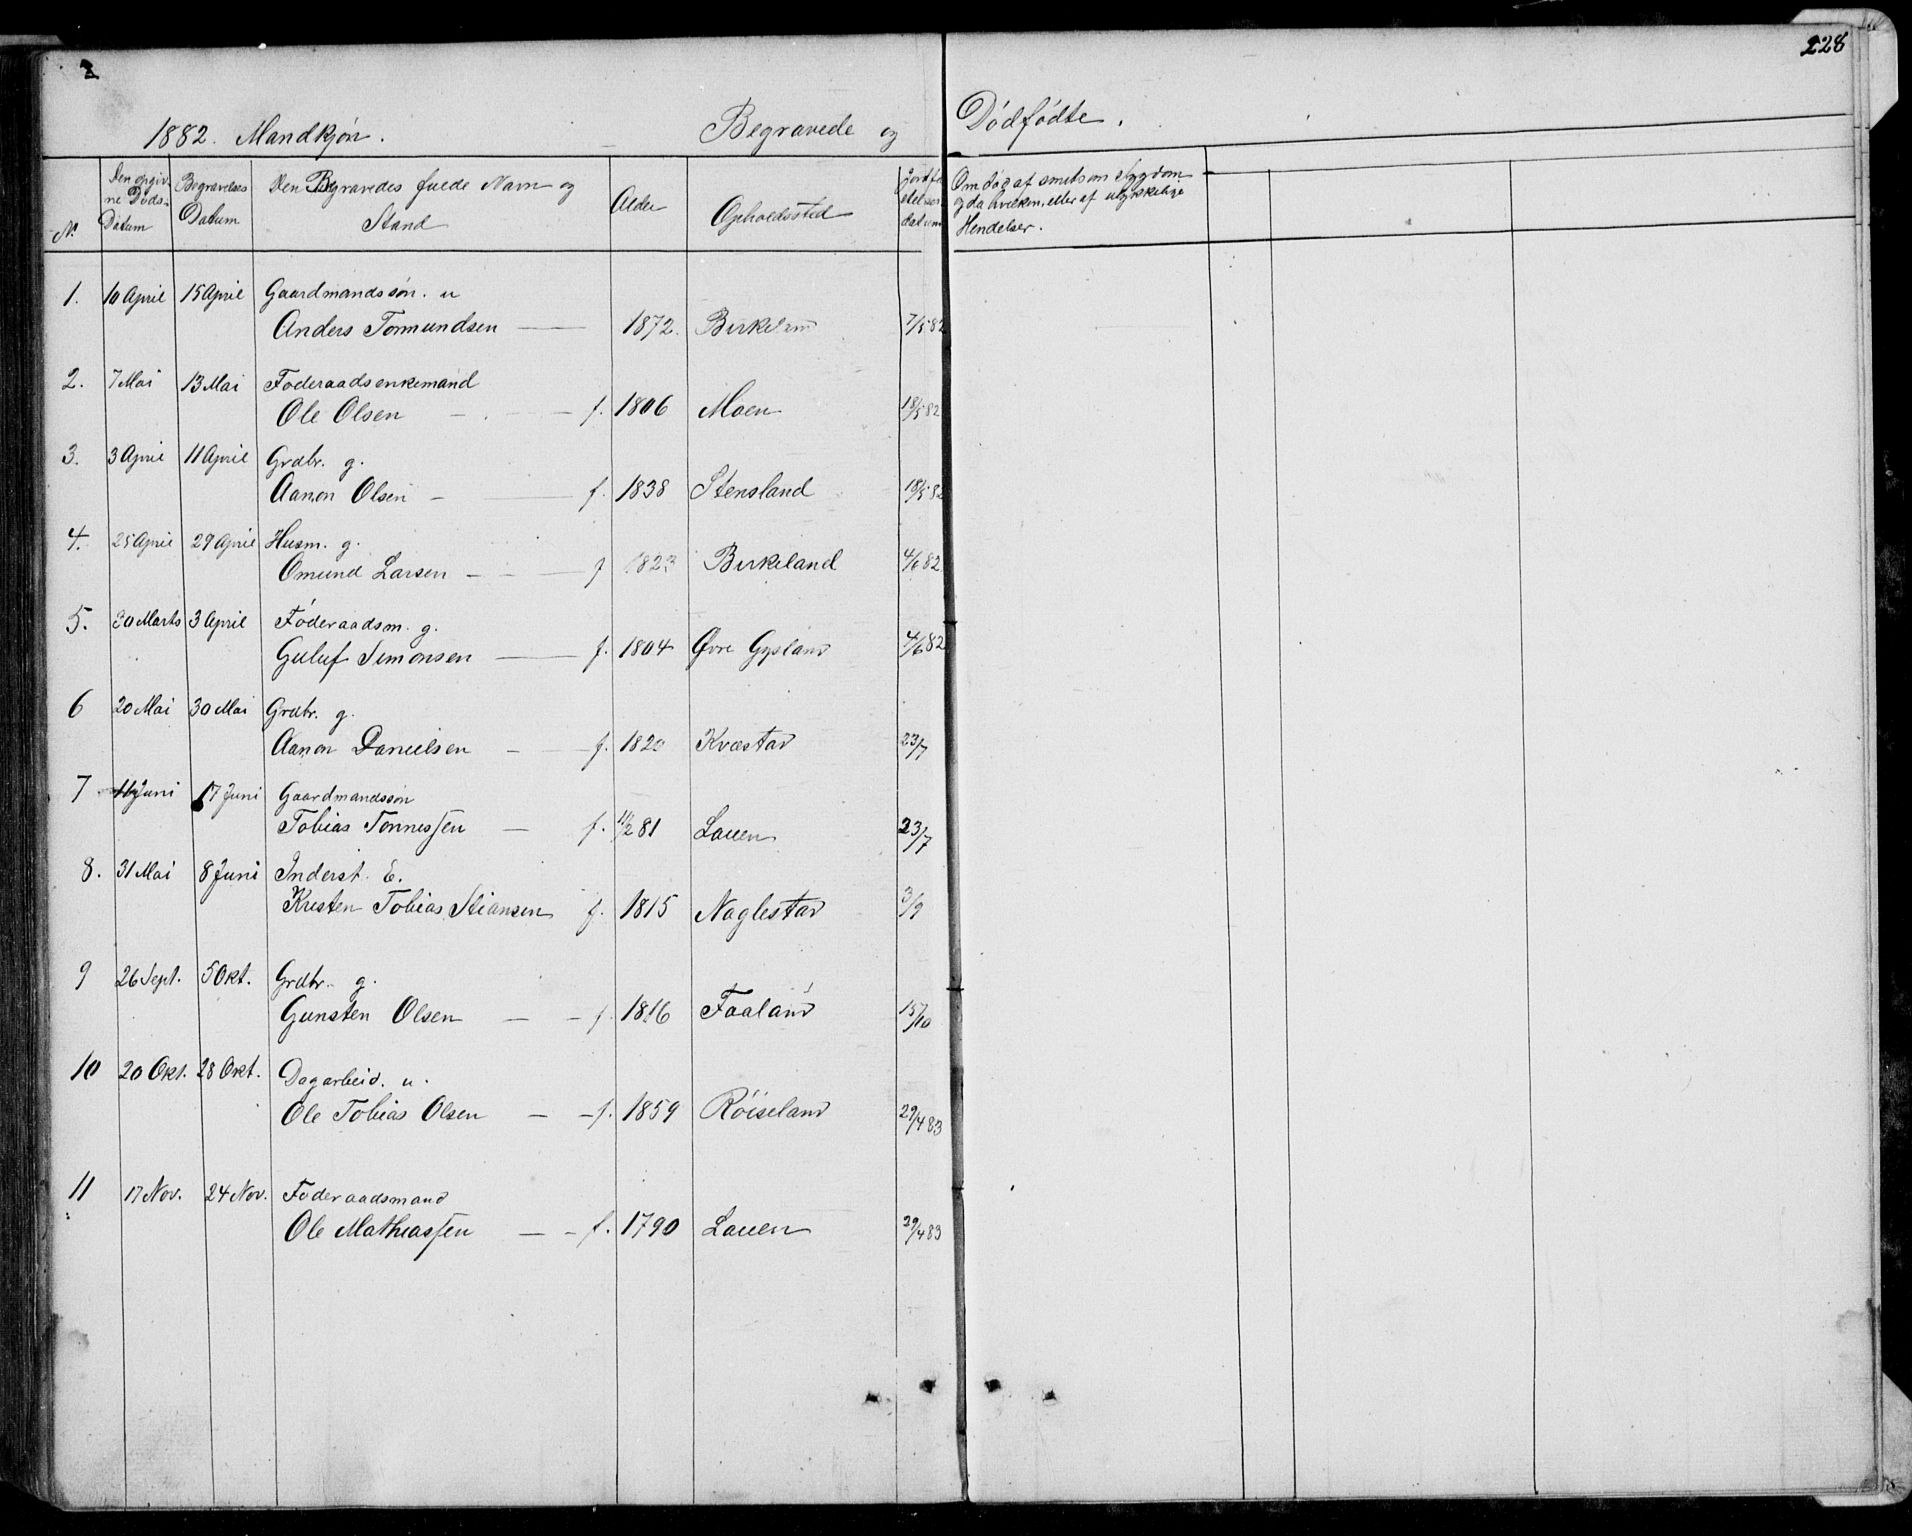 228
1882. Mandkjøn. Begravede og Dødfødte.
No. Den opgivne Døds-Datum Begravelses Datum Den Begravedes fulde Navn og Stand Alder Opholdssted Jordfæstelsesdatum Om død af smitsom Sygdom og da hvilken, eller af ulykkelige Hendelser.
1. 10 April 15 April Gaardmandssøn. u
Anders Tormundsen 1872. Birkeland 7/5 82
2. 7 Mai 13 Mai Føderaadsenkemand
Ole Olsen f. 1806 Moen 18/5 82
3. 3 April 11 April Grdbr. g.
Aanon Olsen f. 1838 Stensland 18/5 82
4. 25 April 29 April Husm. g.
Omund Larsen f 1823 Birkeland 4/6 82
5. 30 Marts 3 April Føderaadsm. g.
Guluf Simonsen f. 1804 Øvre Gysland 4/6 82
6 20 Mai 30 Mai Grdbr. g.
Aanon Danielsen f. 1820 Kvæstad 23/7
7 11 Juni 17 Juni Gaardmandssøn
Tobias Tønnessen f. 11/2 81 Lauen 23/7
8. 31 Mai 8 Juni Inderst. E.
Kristen Tobias Stiansen f. 1815 Naglestad 3/9
9 26 Sept. 5 Okt. Grdbr. g.
Gunsten Olsen f. 1816 Faaland 15/10
10 20 Okt. 28 Okt. Dagarbeid. u.
Ole Tobias Olsen f. 1859 Røiseland 29/4 83
11 17 Nov. 24 Nov. Føderaadsmand
Ole Mathiassen f. 1790 Lauen 29/4 83